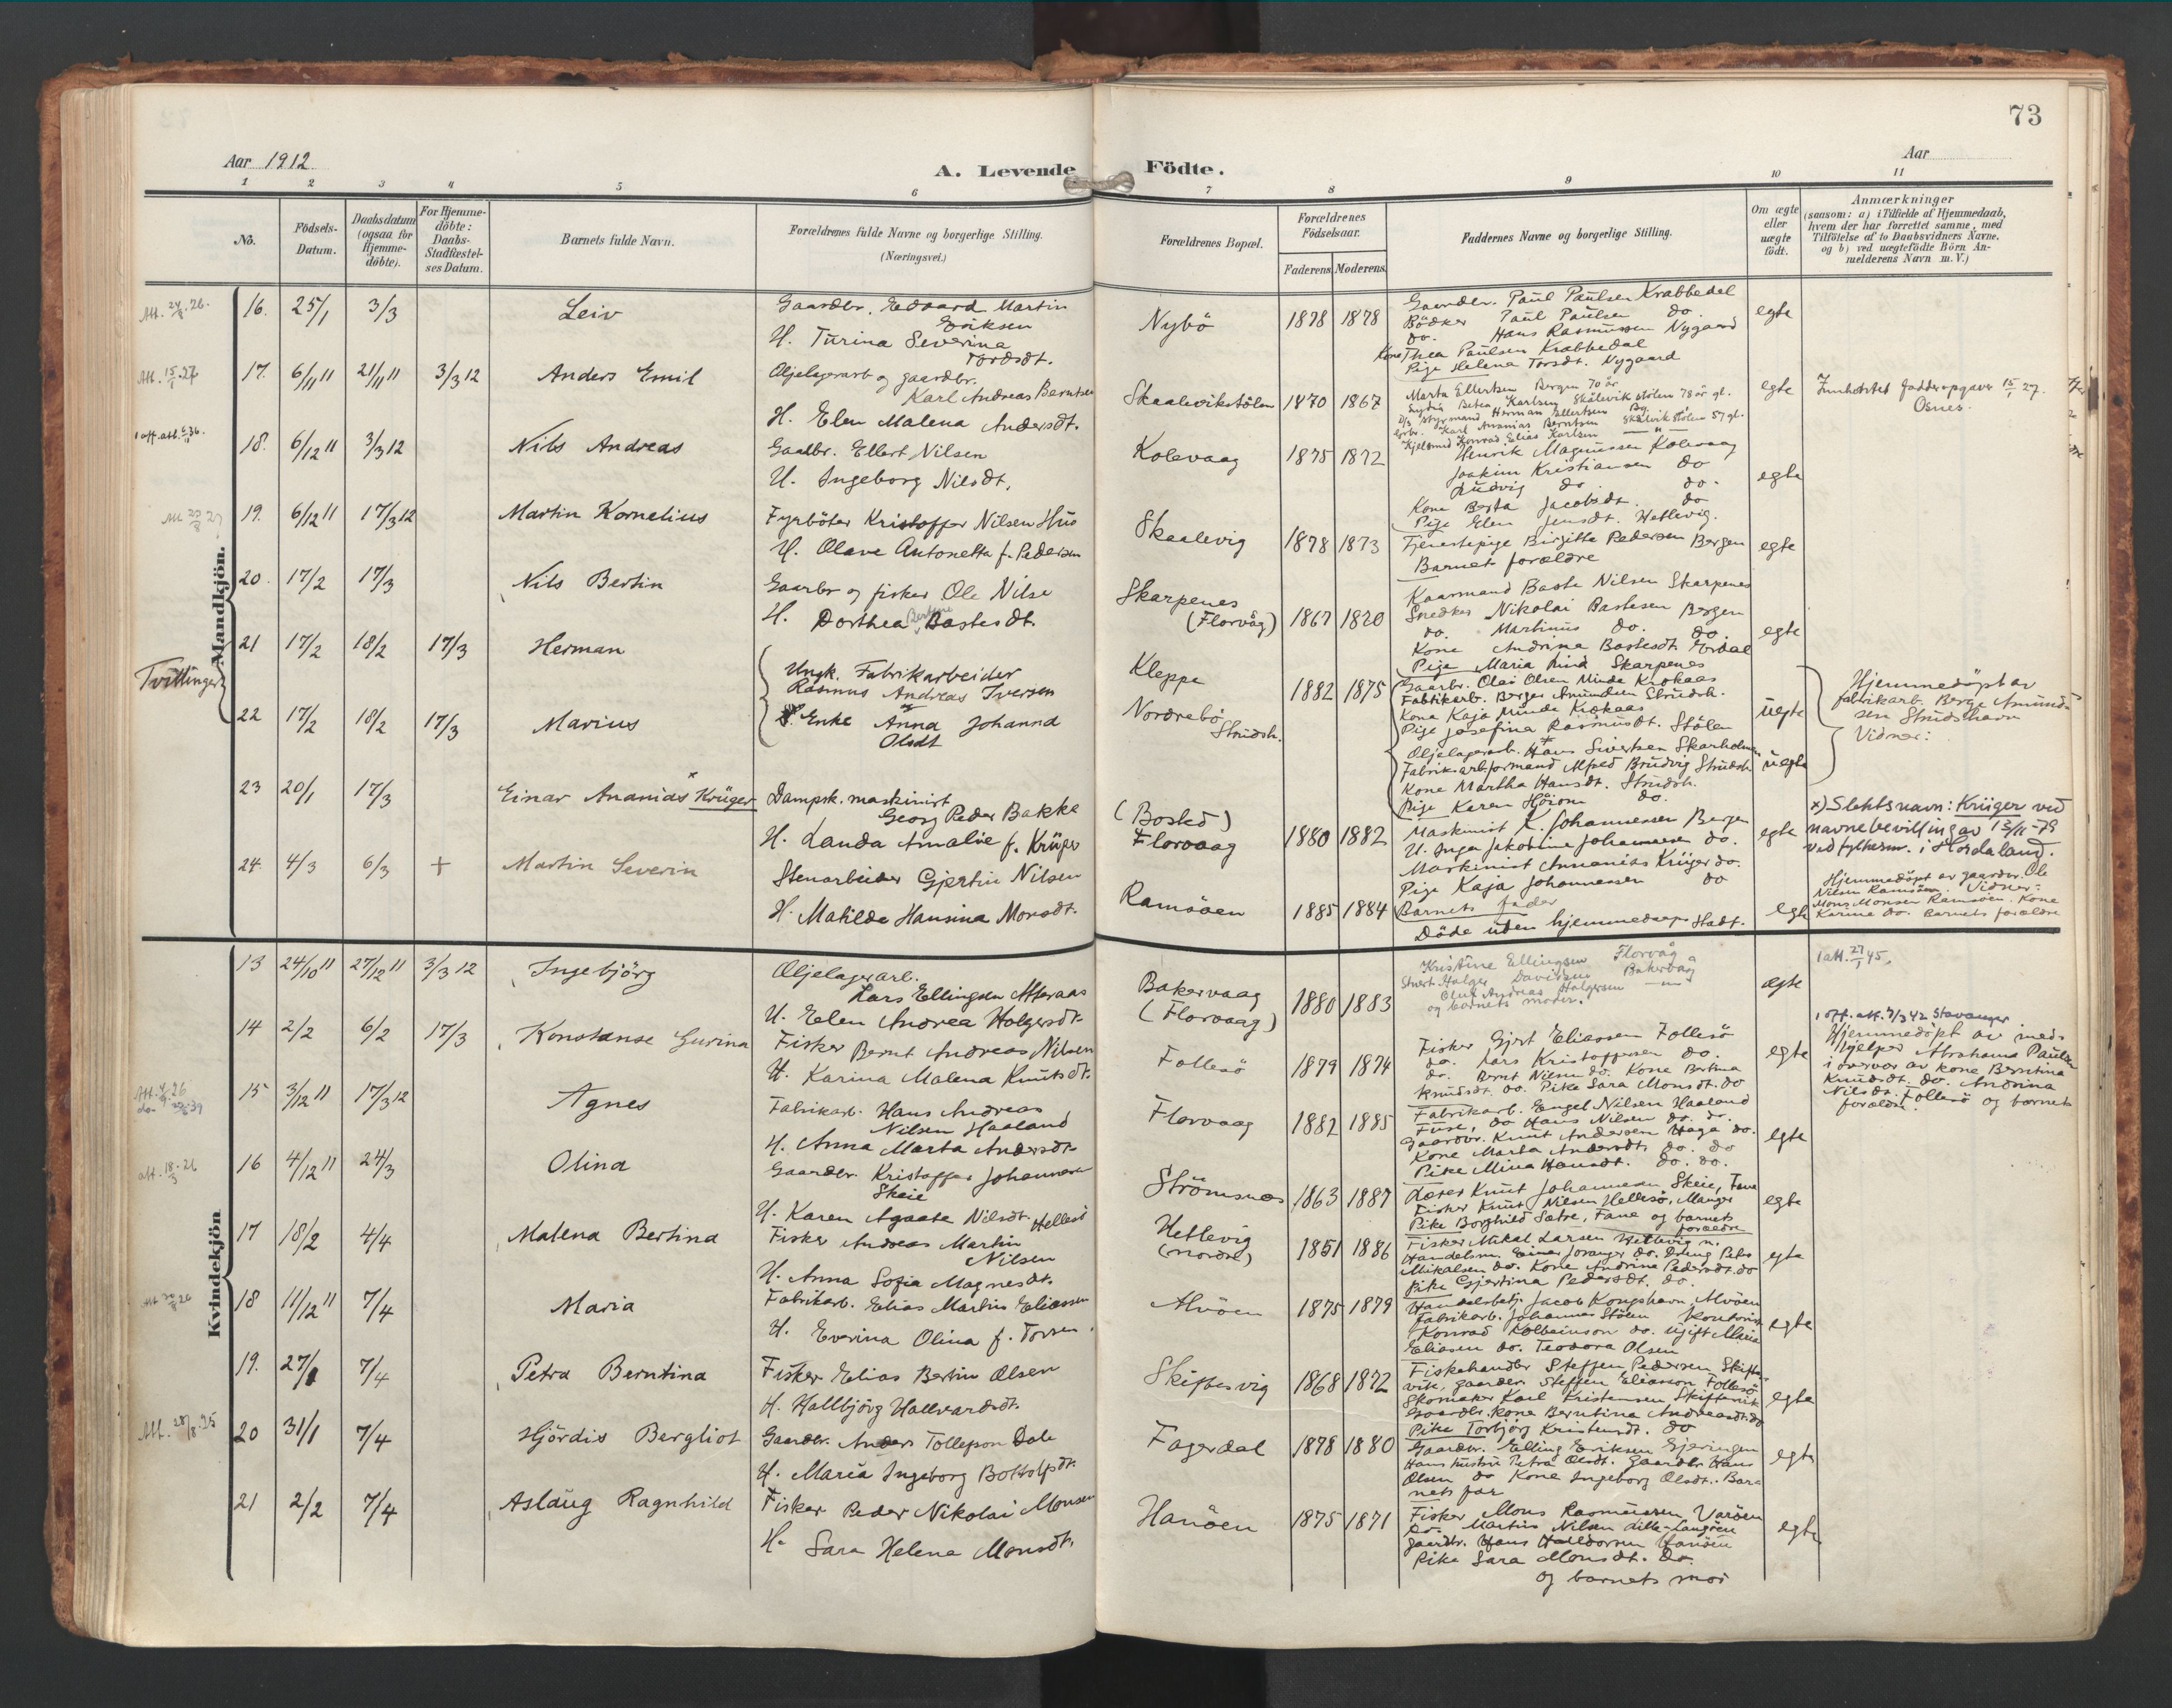 73
Aar 1912.
A. Levende Födte.
Aar
1 2 3 4 5 6 7 8 9 10 11
No.
Födsels-Datum.
Daabsdatum (ogsaa for Hjemme-döbte).
For Hjemme-döbte: Daabs-Stadfæstel-ses Datum.
Barnets fulde Navn.
Forældrenes fulde Navne og borgerlige Stilling.
(Næringsvei.)
Forældrenes Bopæl.
Forældrenes Födselsaar.
Faderens Moderens
Faddernes Navne og borgerlige Stilling.
Om ægte eller uægte födt.
Anmærkninger
(saasom: a) i Tilfælde af Hjemmedaab,
hvem der har forrettet samme, med
Tilföielse af to Daabsvidners Navne.
og b) ved uægtefödte Börn An-
melderens Navn m. V.)
Mandkjön.
16. 25/1 3/3 Leiv
Gaardbr. Edvard Martin
Eriksen
H. Turina Severina
Tordsdt.
Nybö 1878 1878
Gaardbr. Paul Paulsen Krabbedal
Bödker Paul Paulsen do.
do. Hans Rasmussen Nygaard
Kone Thea Paulsen Krabbedal
Pige Helena Torsdt. Nygaard
egte
Att. 15/1.27
17. 6/11 11 21/11 11 3/3 12 Anders Emil
Oljelagerarb og gaardbr.
Karl Andreas Berntsen
H. Elen Malena Andersdt.
Skaalevikstölen 1870 1867
Marta Ellertsen Bergen 70 år
Karlsen Skålevik stölen 78 år gl.
Styrmand Herman Ellertsen
Karl Ananias Berntsen Skålvik stölen 57 gl.
Konrad Elias Karlsen
egte
Innhentet fadderopgaver 15/1 27.
Osnes.
18. 6/12 11 3/3 12 Nils Andreas
Gaalbr. Ellert Nilsen
H. Ingeborg Nilsdt.
Kolevaag 1875 1872
Henrik Magnussen Kolevaag
Joakim Kristiansen do
Ludvig do. do.
Kone Berta Jacobsdt. do
Pige Elen Jensdt. Hetlevig.
egte
19. 6/12 11 17/3 12 Martin Kornelius
Fyrböter Kristoffer Nilsen Hus
H. Olave Antonetta f. Pedersen
Skaalevig 1878 1873
Tjenestepige Birgitte Pedersen Bergen
Barnets forældre
egte
20. 17/2 17/3 Nils Bertin
Gaarbr og fisker Ole Nilse
H. Dorthea Bastesdt.
Skarpenes
(Florvåg) 1867 1870
Kaarmand Baste Nilsen Skarpenes
Snedker Nikolai Bastesen Bergen
do. Martinus do. do.
Kone Andrina Bastesdt. Erdal
Pige Maria Skarpenes
egte
Tvillinger
21 17/2 18/2 17/3 Herman
22 17/2 18/2 17/3 Marius
Ungk. Fabrikarbeider
Rasmus Andreas Iversen
Enke Anna Johanna
Olsdt
Kleppe 1882 1875
Nordrebö
Strudsh.
Gaarbr. Olai Olsen Minde Krokaas
Fabrikarb. Berge Amundsen Strudsh.
Kone Kaja Minde Krokaas
Pige Josefina Rasmusdt. Stölen
uegte
Oljelagerarb. Hans Sivertsen Skarholmen
Fabrikarb.formand Alfred Brudvig Strudsh.
Kone Martha Hansdt. Strudsh.
Pige Karen do.
uegte
Hjemmedöpt av
fabrikarb. Berge Amund-
sen Strudshavn
Vidner:
23 20/1 17/3 Einar Ananias x Krüger
Dampsk. maskinist
Georg Peder Bakke
H. Landa Amalie f. Krüger
(Bosted)
Florvaag 1880 1882
Maskinist K. Johannessen Bergen
H. Inga Jakobine Johannessen do.
Maskinist Annanias Krüger do.
Pige Kaja Johannessen do
egte
x) Slektsnavn: Krüger ved
navnebevilling av 12/11-79
ved fylkesm. i Hordaland.
24. 4/3 6/3 + Martin Severin
Stenarbeider Gjertin Nilsen
H. Matilde Hansina Monsdt.
Ramsöen 1885 1884
Barnets fader
Döde uten hjemmedaaps stadf.
egte
Hjemmedöpt av gaardbr. Ole
Nilsen Ramsöen. Vidner:
Mons Monsen Ramsöen. Kone
Karina do. Barnets forældre
Kvindekjön
13 24/10 11 27/12 11 3/3 12 Ingebjörg
Oljelagerarb.
Lars Ellingsen Alteraas
H. Elen Andrea Holgersdt.
Bakervaag
(Florvaag) 1880 1883
Kristine Ellingsen Florvåg
Holger Davidsen Bakervåg
Oluf Andreas Holgersen
og barnets moder.
ægte
1 att. 27/1 45.
14 2/2 6/2 17/3 Konstanse Gurina
Fisker Bernt Andreas Nilsen
H. Karina Malena Knutsdt.
Follesö 1879 1874
Fisker Gjert Eliassen Follesö
do. Lars Kristoffersen do.
do. Bernt Nilsen do. Kone Bertina
Knudsdt. do. Pike Sara Monsdt. do
egte
1 off. att. 7/3 42 Stavanger
Hjemmedöpt av meds
hjelper Abrahama Paulsen
i overvær av kone Berntina
Knudsdt. do. Andrina
Nilsdt. Follesö og barnets
forældre.
15 3/12 11 17/3 12 Agnes
Fabrikarb. Hans Andreas
Nilsen Haaland
H. Anna Marta Andersdt.
Florvaag 1882 1885
Fabrikarb. Engel Nilsen Haaland
Fuse, do Hans Nilsen do. do.
Gaardbr. Knut Andersen Haga do.
Kone Marta Andersdt. do. do
Pike Mina Hansdt. do. do.
egte
16 4/12 11 24/3 Olina
Gaardbr. Kristoffer Johannesen
Skeie
H. Karen Agaate Nilsdt. Hellesö
Strömsnes 1863 1887
Lærer Knut Johannesen Skeie, Fane
Fisker Knut Nilsen Hellesö, Manger
Pike Borghild Sætre, Fane og barnets
forældre
egte
17 18/2 4/4 Malena Bertina
Fisker Andreas Martin
Nilsen
H. Anna Sofia Magnesdt.
Hetlevig
(nordre) 1851 1886
Fisker Mikal Larsen Hetlevig n.
Handelsm. Einar Joranger do. Dreng Peder
Mikalsen do. Kone Andrina Pedersdt. do
Pike Gjertina Pedersdt. do.
egte
18 11/12 11 7/4 Maria
Fabrikarb. Elias Martin Eliassen
H. Everina Olina f. Torsen
Alvöen 1875 1879
Handelsbetj. Jacob Kongshavn, Alvöen
Fabrikarb. Johannes Stölen Kontorist
Konrad Kolbeinson do. Ugift Maria
Eliasen do. Teodora Olsen
egte
19. 27/1 7/4 Petra Berntina
Fisker Elias Bertin Olsen
H. Hallbjörg Hallvardsdt.
Skiftesvig 1868 1872
Fiskehandler Steffen Pedersen Skiftes-
vik, gaardbr. Steffen Eliassen Follesö
Skomaker Karl Kristensen Skiftesvik
Gaardbr. kone Berntina Andreasdt. do
Pike Torbjörg Kristensdt. do
egte
20 31/1 7/4 Hjördis Bergliot
Gaardbr. Anders Tollefson Dale
H. Maria Ingeborg Botolfsdt.
Fagerdal 1878 1880
Gaardbr. Elling Eriksen Gjeringen
Hans hustru Petra Olsdt. gaardbr. Hans
Olsen do Kone Ingeborg Olsdt. Bar-
nets far
egte
21 2/2 7/4 Aslaug Ragnhild
Fisker Peder Nikolai Monsen
H. Sara Helena Monsdt.
Hanöen 1875 1871
Fisker Mons Rasmussen Varöen
do. Martin Nilsen Lille-Langöen
gaardbr. Hans Halldorsen Hanöen
Pike Sara Monsdt. do.
og barnets mor
egte